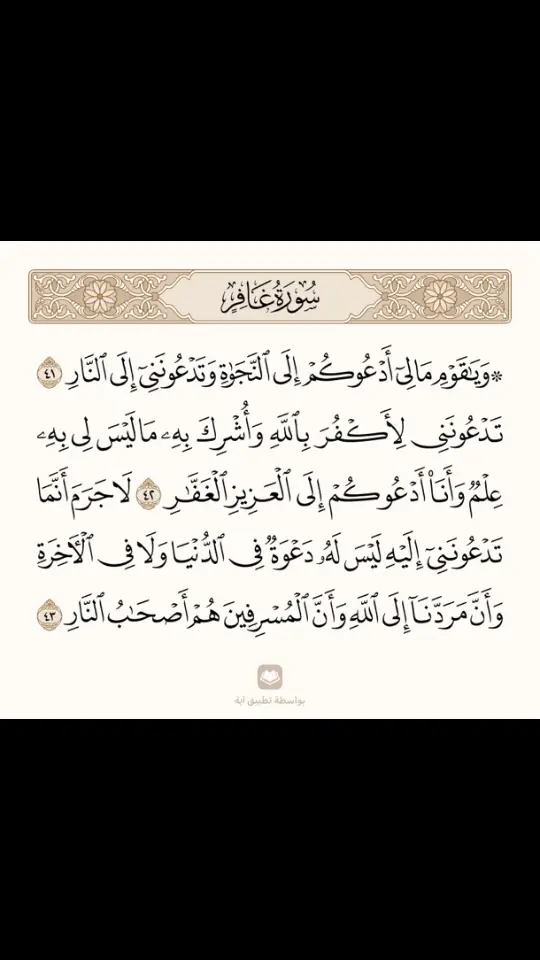 سُورَةُ غَافِرٍ
۞ وَيَٰقَوْمِ مَا لِيٓ أَدْعُوكُمْ إِلَى ٱلنَّجَوٰةِ وَتَدْعُونَنِيٓ إِلَى ٱلنَّارِ ٤١
تَدْعُونَنِي لِأَكْفُرَ بِٱللَّهِ وَأُشْرِكَ بِهِۦ مَا لَيْسَ لِي بِهِۦ
عِلْمٌ وَأَنَا۠ أَدْعُوكُمْ إِلَى ٱلْعَزِيزِ ٱلْغَفَّٰرِ ٤٢ لَا جَرَمَ أَنَّمَا
تَدْعُونَنِيٓ إِلَيْهِ لَيْسَ لَهُۥ دَعْوَةٌ فِي ٱلدُّنْيَا وَلَا فِي ٱلْأٓخِرَةِ
وَأَنَّ مَرَدَّنَآ إِلَى ٱللَّهِ وَأَنَّ ٱلْمُسْرِفِينَ هُمْ أَصْحَٰبُ ٱلنَّارِ ٤٣
بواسطة تطبيق آية